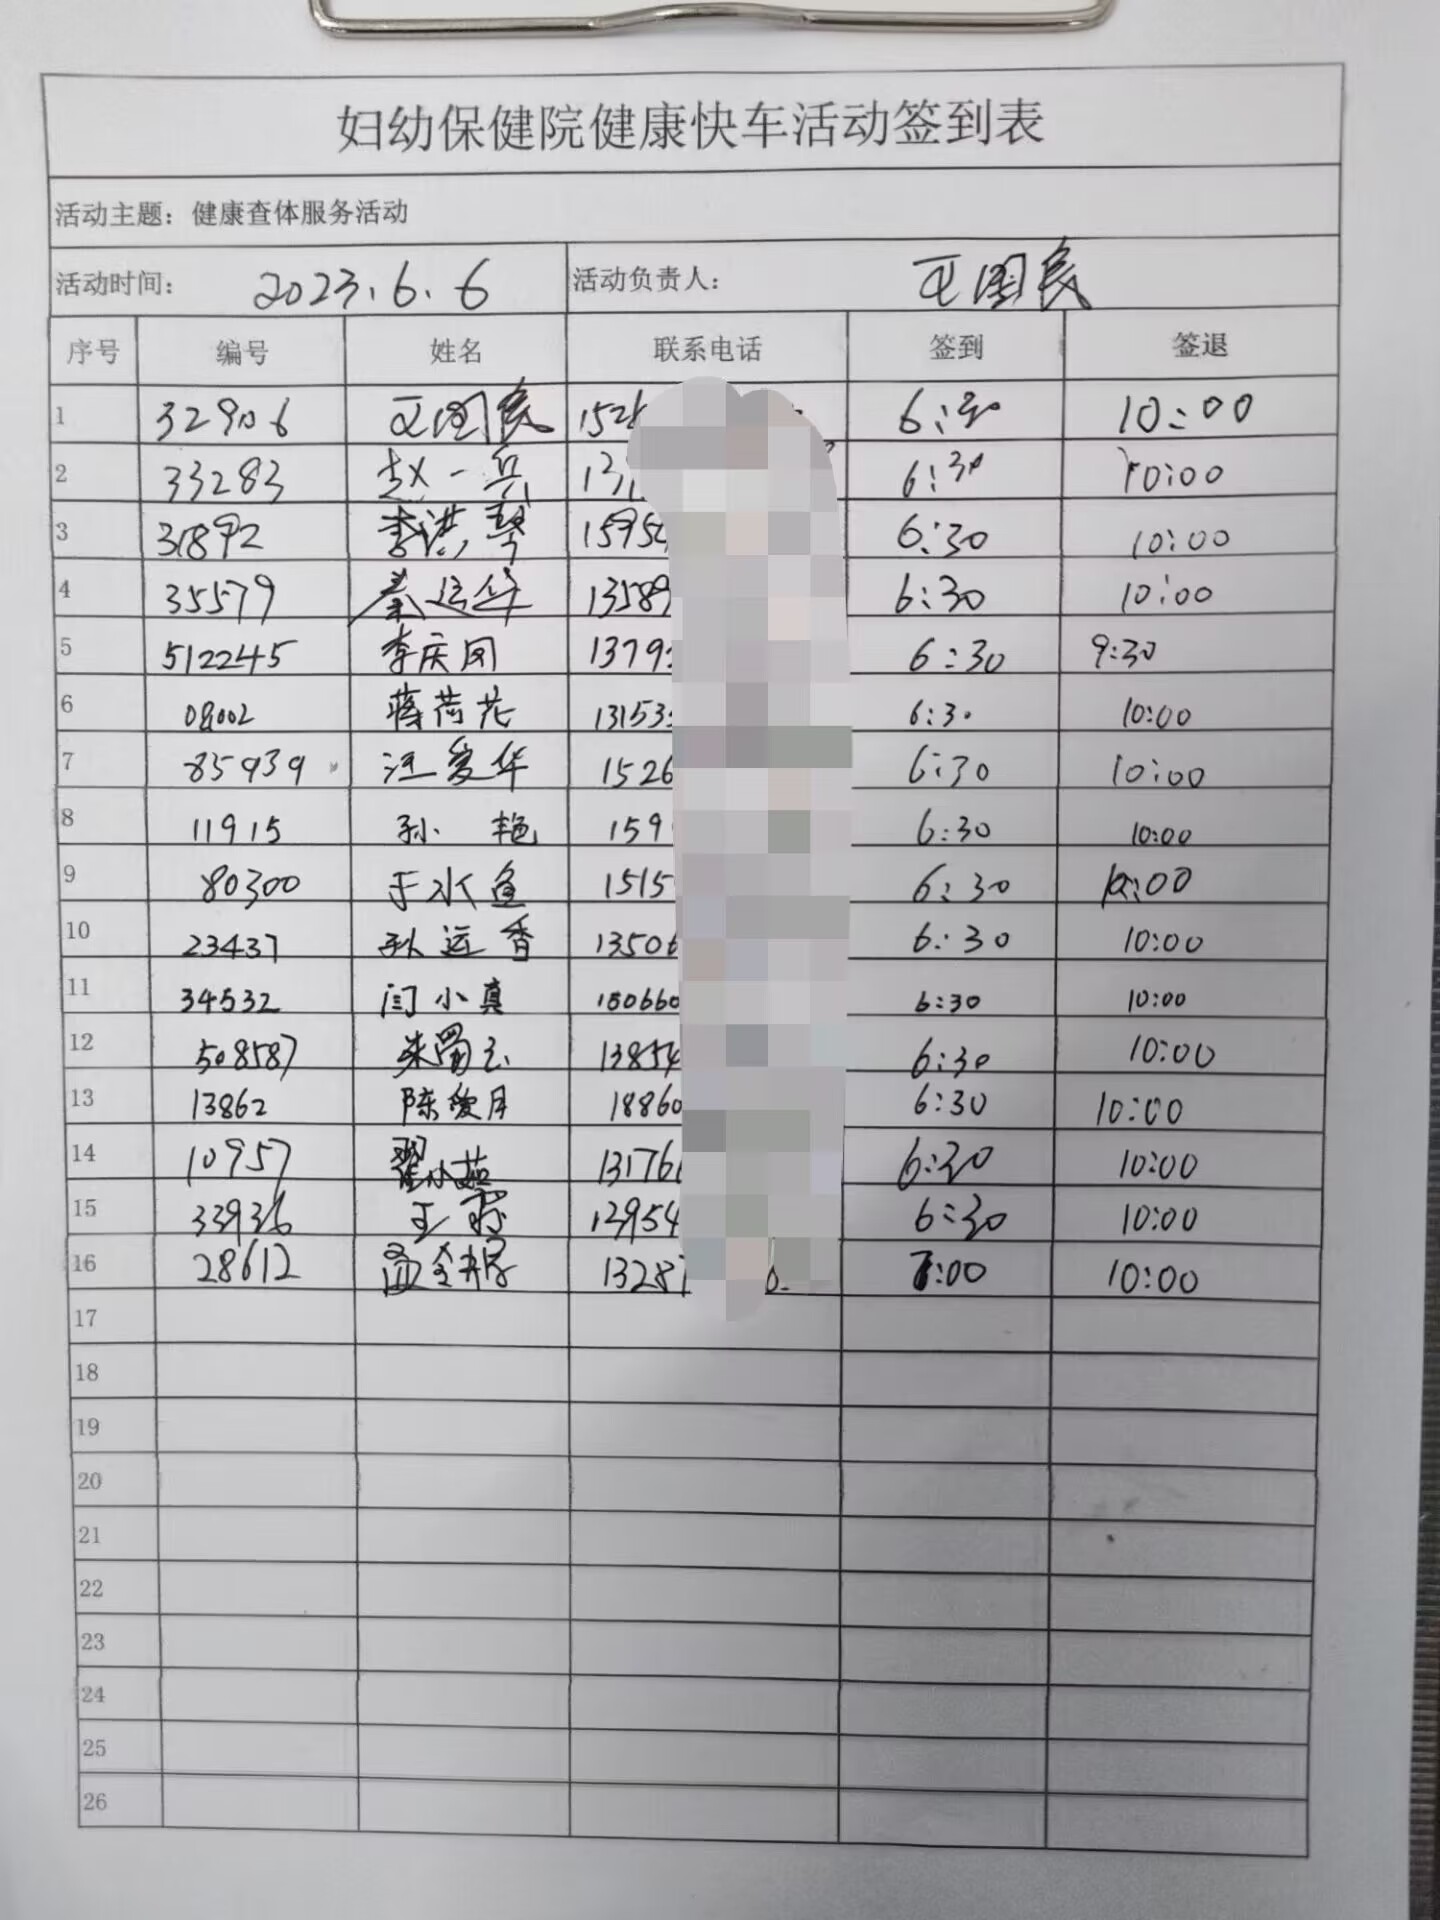 妇幼保健院健康快车活动签到表
活动主题：健康查体服务活动
活动时间： 2023.6.6 活动负责人： 王国民
序号 编号 姓名 联系电话 签到 签退
1 32906 王国民 1526 6:30 10:00
2 33283 赵一兵 131 6:30 10:00
3 31892 李洪琴 1595 6:30 10:00
4 35579 秦运华 13589 6:30 10:00
5 512245 李庆凤 1379 6:30 9:30
6 08002 蒋荷花 13153 6:30 10:00
7 85939 汪爱华 1526 6:30 10:00
8 11915 孙艳 159 6:30 10:00
9 80300 于水鱼 1515 6:30 10:00
10 23437 孙远香 13506 6:30 10:00
11 34532 闫小真 150660 6:30 10:00
12 508587 朱 13854 6:30 10:00
13 13862 陈爱月 18860 6:30 10:00
14 10957 翟小茹 13176 6:30 10:00
15 33936 王 13954 6:30 10:00
16 28612 1328 7:00 10:00
17
18
19
20
21
22
23
24
25
26